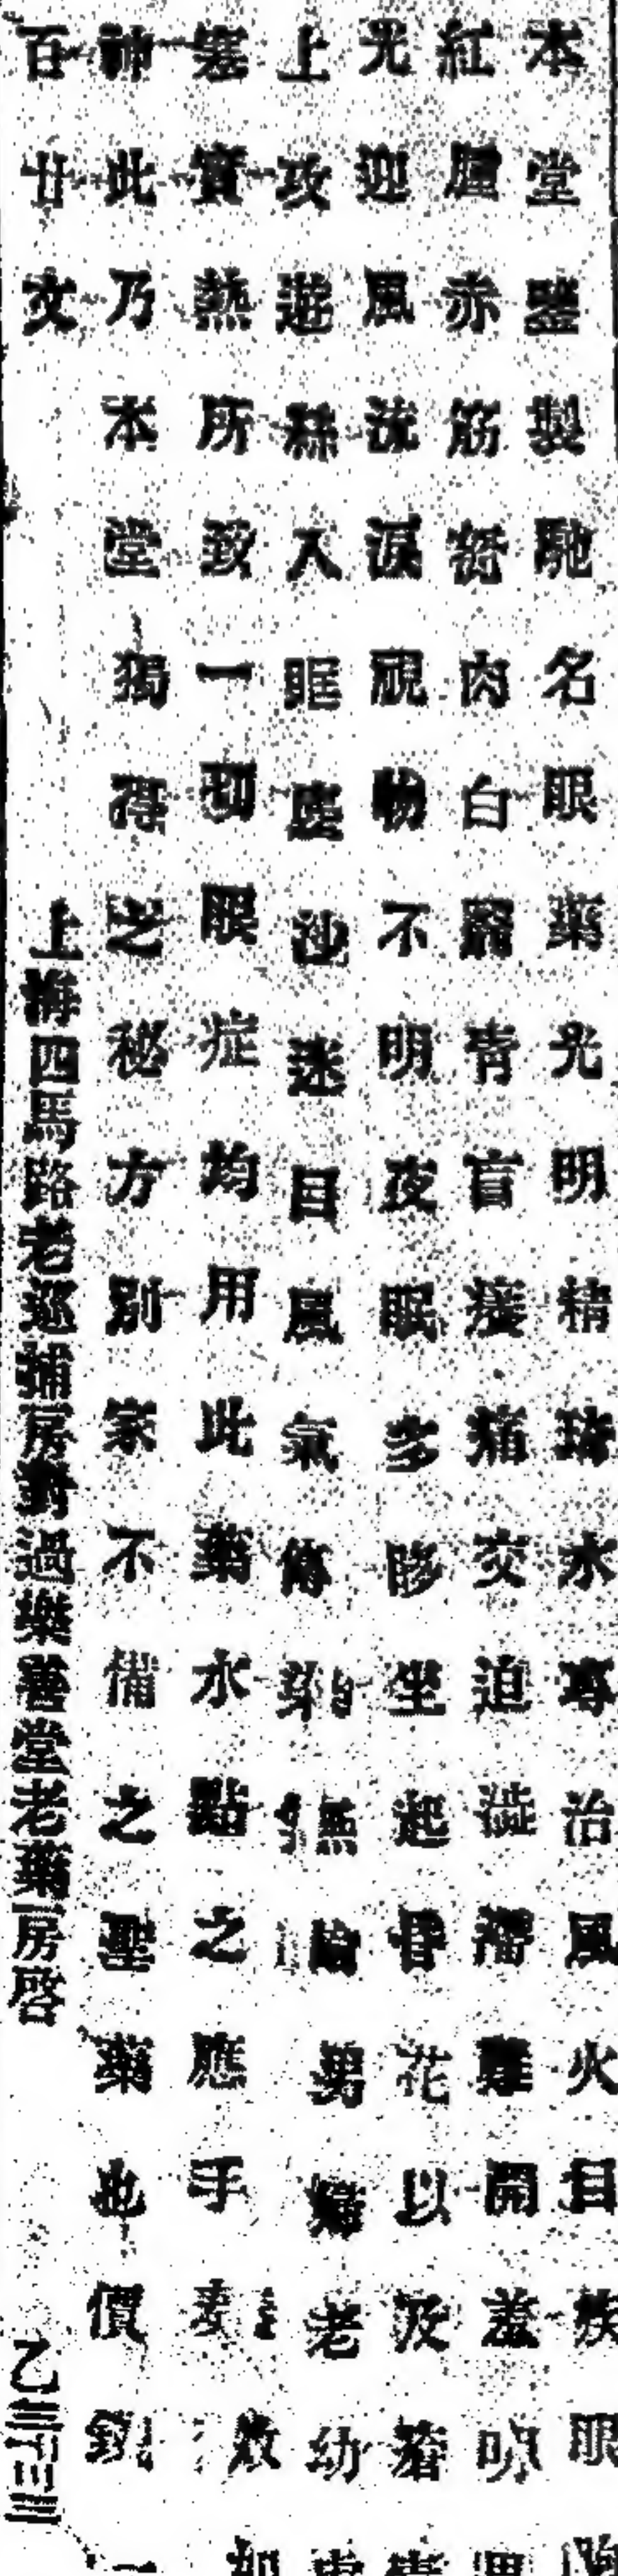 本堂鑒製馳名眼藥光明精琦水專治風火目疾眼胞
紅腫赤筋努肉白翳青盲癢痛交迫澁滯難開羞明畏
光迎風流淚視物不明夜眠多眵坐起昏花以及瘡毒
上攻遊絲入眶塵沙迷目風氣傳染 男婦老幼虛
寔實熱所致一切眼症均用此藥水點之應手奏效如
神此乃本堂獨得之秘方別家不備之聖藥也價錢一
百廿文
上海四馬路老巡捕房對過樂善堂老藥房啓
乙